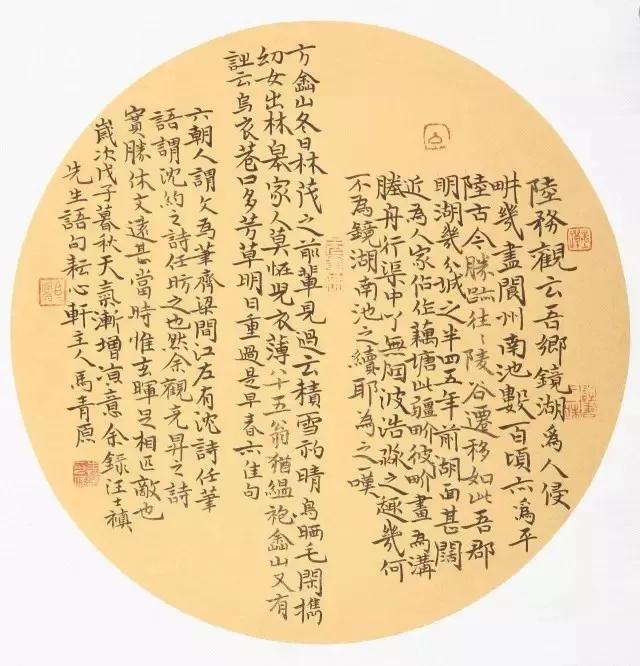 陸務觀云吾鄉鏡湖為人侵
畊幾盡閬州南池數百頃亦為平
陸古今勝蹟往々陵谷遷移如此吾郡
明湖幾城之半四五年前湖面甚闊
近為人家佔作藕塘此疆畍彼畍畫為溝
塍舟行渠中了無烟波浩淼之趣幾何
不為鏡湖南池之續耶為之一嘆
方嵞山冬日林茂之前輩見過云積雪初晴鳥晒毛閑攜
幼女出林皋家人莫怪兒衣薄八十五翁猶縕袍嵞山又有
詩云烏衣巷口多芳草明日重過是早春亦佳句
六朝人謂文為筆齊梁間江左有沈詩任筆
語謂沈約之詩任昉之文也然余觀彥昇之詩
實勝休文遠甚當時惟玄暉足相匹敵也
歲次戊子暮秋天氣漸增涼意余錄汪士禛
先生語句耘心軒主人馬青原